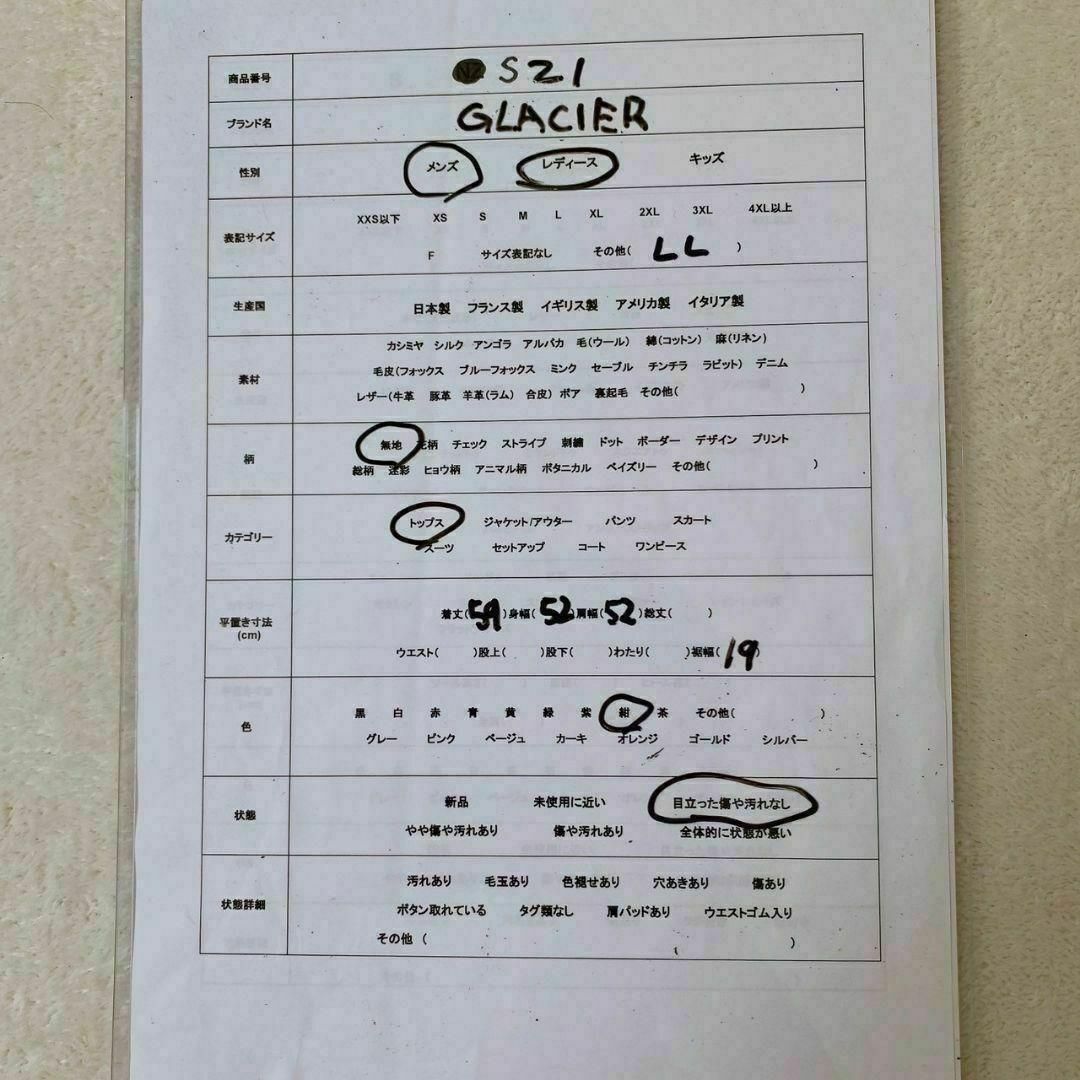 商品番号 NZ S21
ブランド名 GLACIER
性別 メンズ レディース キッズ
XXS以下 XS S M L XL 2XL 3XL 4XL以上
表記サイズ
F サイズ表記なし その他( LL )
生産国 日本製 フランス製 イギリス製 アメリカ製 イタリア製
カシミヤ シルク アンゴラ アルパカ 毛(ウール) 綿(コットン) 麻(リネン)
素材 毛皮(フォックス ブルーフォックス ミンク セーブル チンチラ ラビット) デニム
レザー(牛革 豚革 羊革(ラム) 合皮) ボア 裏起毛 その他( )
柄 無地 花柄 チェック ストライプ 刺繍 ドット ボーダー デザイン プリント
総柄 迷彩 ヒョウ柄 アニマル柄 ボタニカル ペイズリー その他( )
カテゴリー トップス ジャケット/アウター パンツ スカート
スーツ セットアップ コート ワンピース
平置き寸法 着丈(59)身幅(52)肩幅(52)総丈( )
(cm) ウエスト( )股上( )股下( )わたり( )裾幅(19)
色 黒 白 赤 青 黄 緑 紫 紺 茶 その他( )
グレー ピンク ベージュ カーキ オレンジ ゴールド シルバー
状態 新品 未使用に近い 目立った傷や汚れなし
やや傷や汚れあり 傷や汚れあり 全体的に状態が悪い
汚れあり 毛玉あり 色褪せあり 穴あきあり 傷あり
状態詳細 ボタン取れている タグ類なし 肩パッドあり ウエストゴム入り
その他 ( )